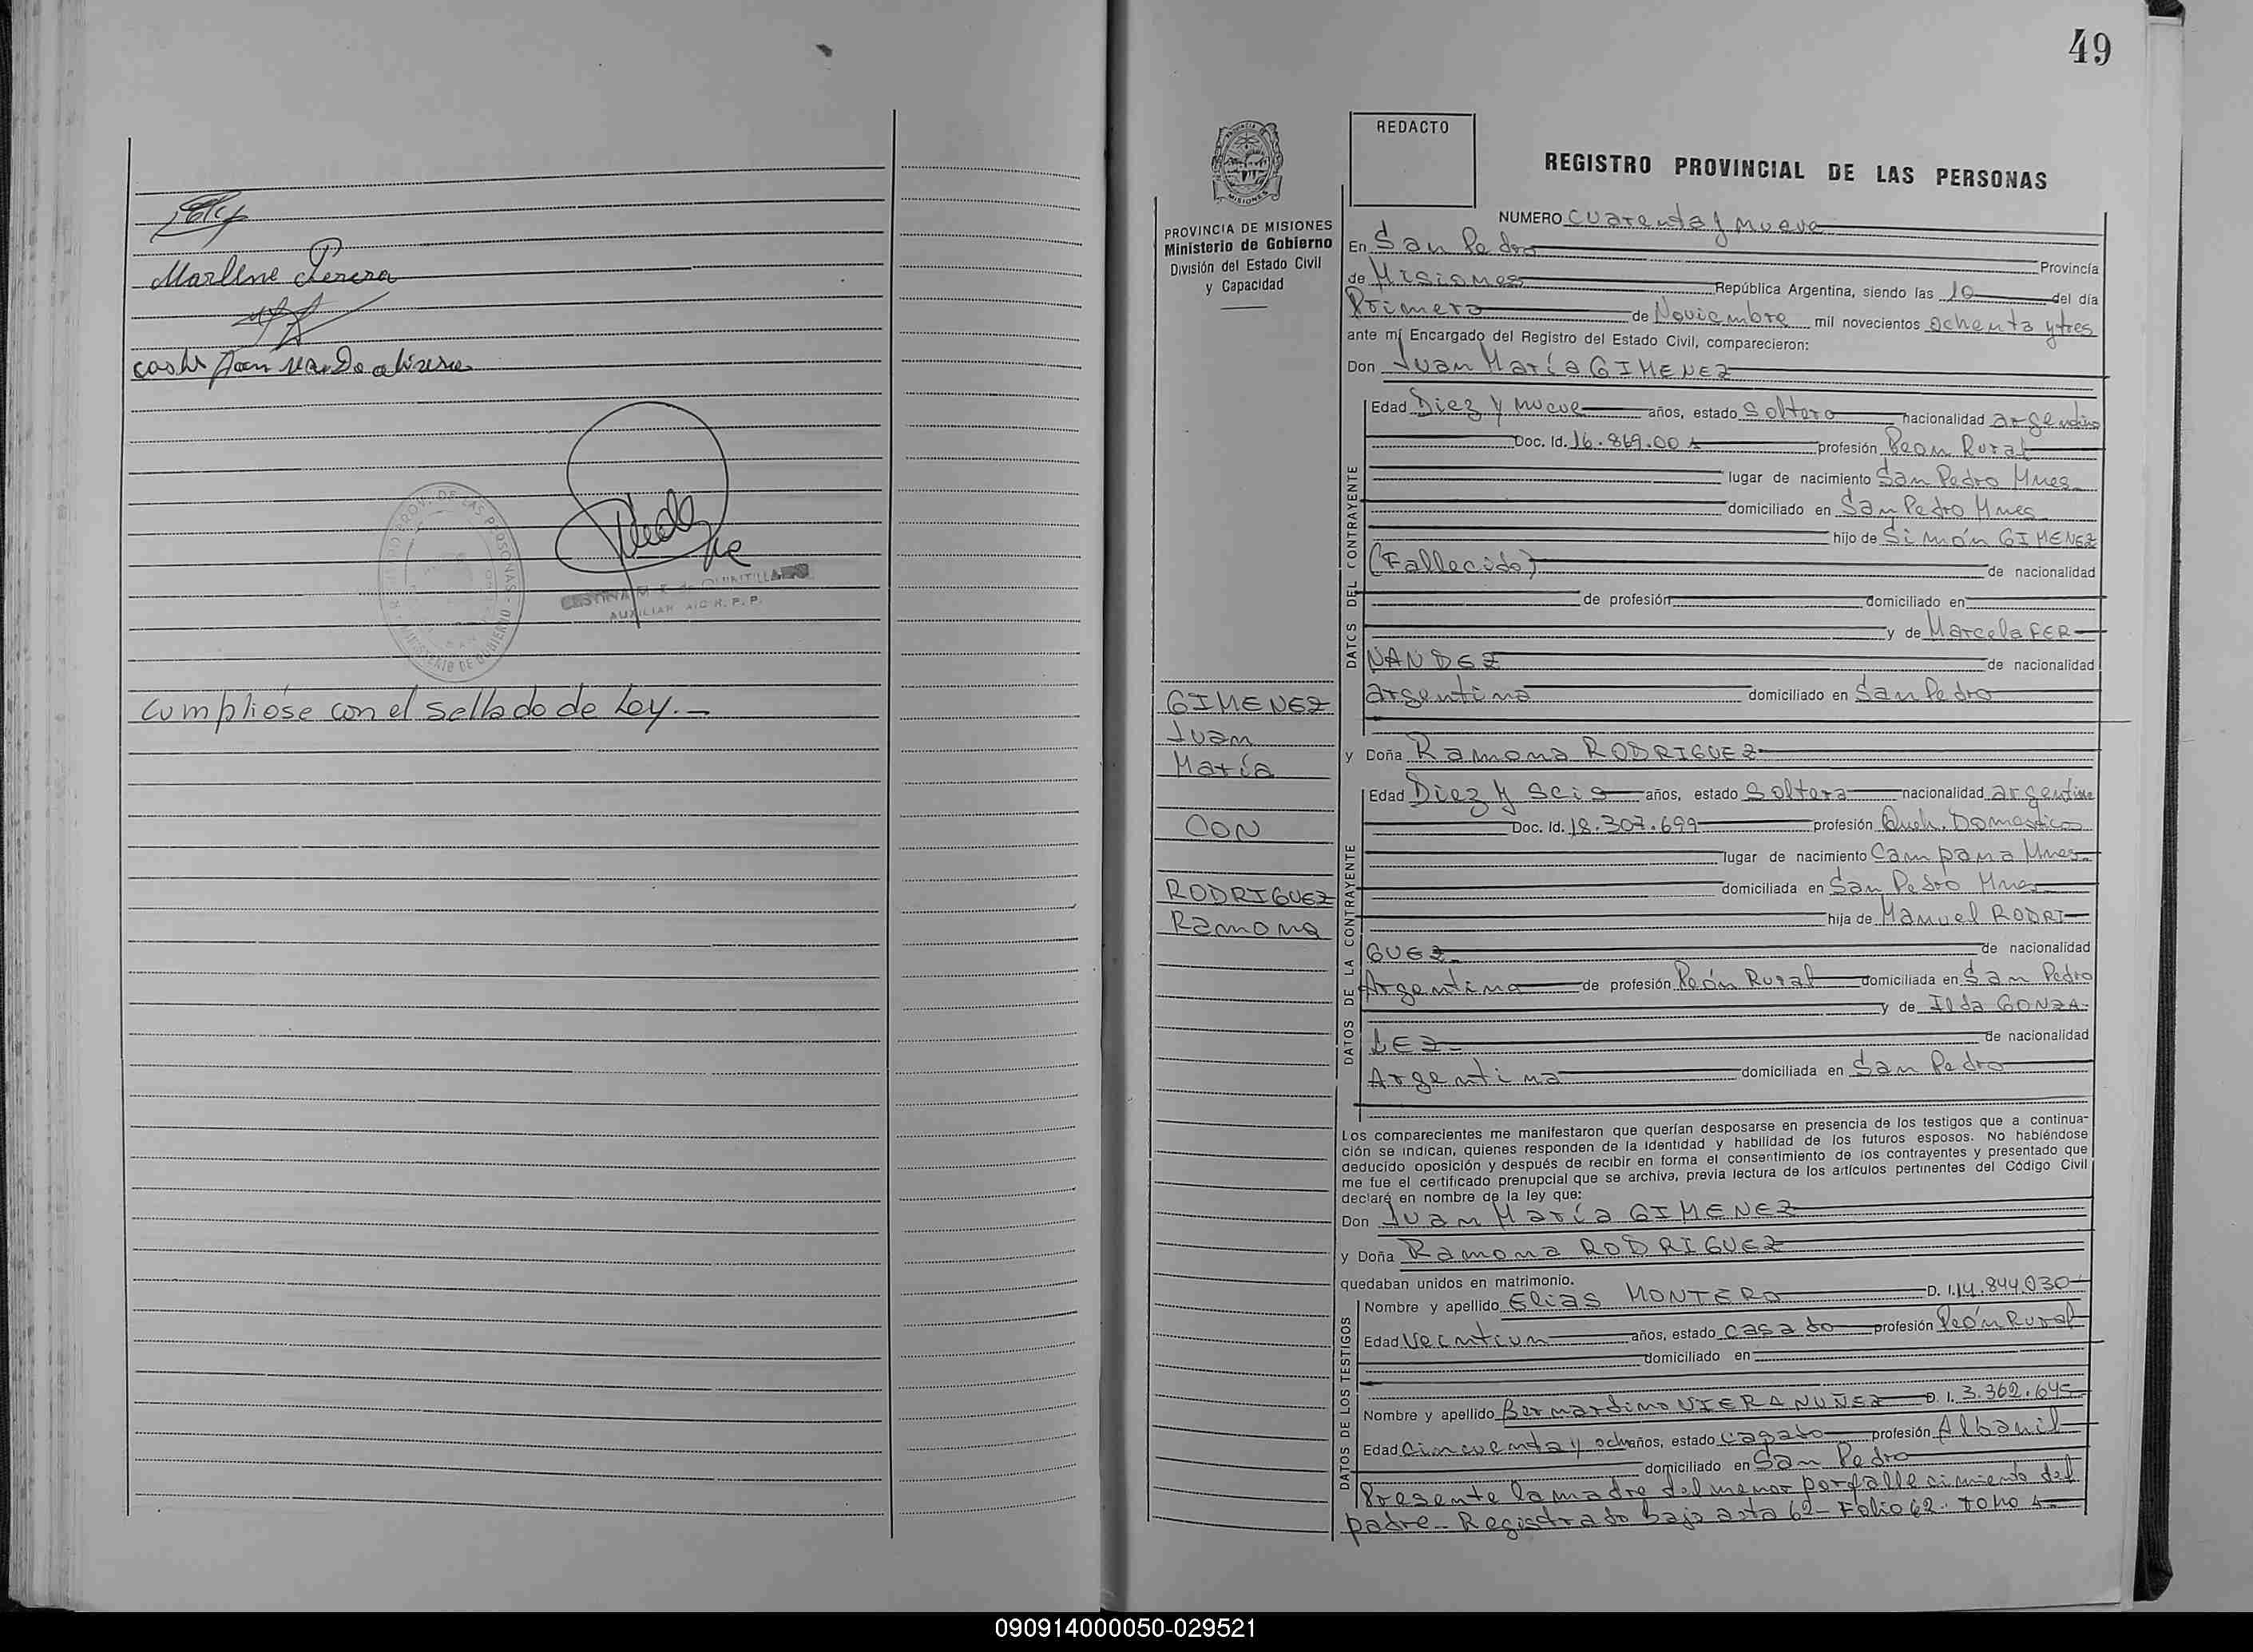 Marlene Perera
MINISTERIO DE GOBIERNO
AUXILIAR
Cumplióse con el Sellado de Ley.-
49
PROVINCIA DE MISIONES
Ministerio de Gobierno
División del Estado Civil
y Capacidad
REDACTO
REGISTRO PROVINCIAL DE LAS PERSONAS
NUMERO Cuarenta y nueve
En San Pedro Provincia
de Misiones República Argentina, siendo las 10 del día
Primero de Noviembre mil novecientos ochenta y tres
ante mí Encargado del Registro del Estado Civil, comparecieron:
Don Juan María GIMENEZ
DATOS DEL CONTRAYENTE
Edad Diez y nueve años, estado Soltero nacionalidad argentino
Doc. Id. 16.869.00 profesión Peon Rural
lugar de nacimiento San Pedro Mnes
domiciliado en San Pedro Mnes
hijo de Simón GIMENEZ
(Fallecido) de nacionalidad
de profesión domiciliado en
y de Marcela FER
NANDEZ de nacionalidad
argentina domiciliado en San Pedro
GIMENEZ
Juan
María
CON
RODRIGUEZ
Ramona
y Doña Ramona RODRIGUEZ
DATOS DE LA CONTRAYENTE
Edad Diez y seis años, estado Soltera nacionalidad argentina
Doc. Id. 18.307.699 profesión Queh. Domestico
lugar de nacimiento Campana Mnes
domiciliada en San Pedro Mnes
hija de Manuel RODRI
GUEZ de nacionalidad
Argentina de profesión Peón Rural domiciliada en San Pedro
y de Ilda GONZA-
LEZ- de nacionalidad
Argentina domiciliada en San Pedro
Los comparecientes me manifestaron que querían desposarse en presencia de los testigos que a continua-
ción se indican, quienes responden de la identidad y habilidad de los futuros esposos. No habiéndose
deducido oposición y después de recibir en forma el consentimiento de los contrayentes y presentado que
me fue el certificado prenupcial que se archiva, previa lectura de los artículos pertinentes del Código Civil
declaré en nombre de la ley que:
Don Juan María GIMENEZ
y Doña Ramona RODRIGUEZ
quedaban unidos en matrimonio.
DATOS DE LOS TESTIGOS
Nombre y apellido Elias MONTERO D. I. 14.844.030
Edad Veintiun años, estado casado profesión Peón Rural
domiciliado en
Nombre y apellido Bernardino VIERA NUÑEZ D. I. 3.362.645
Edad Cincuenta y ocho años, estado casado profesión Albanil
domiciliado en San Pedro
Presente la madre del menor por fallecimiento del
padre- Registrado bajo acta 62- Folio 62. tomo
090914000050-029521